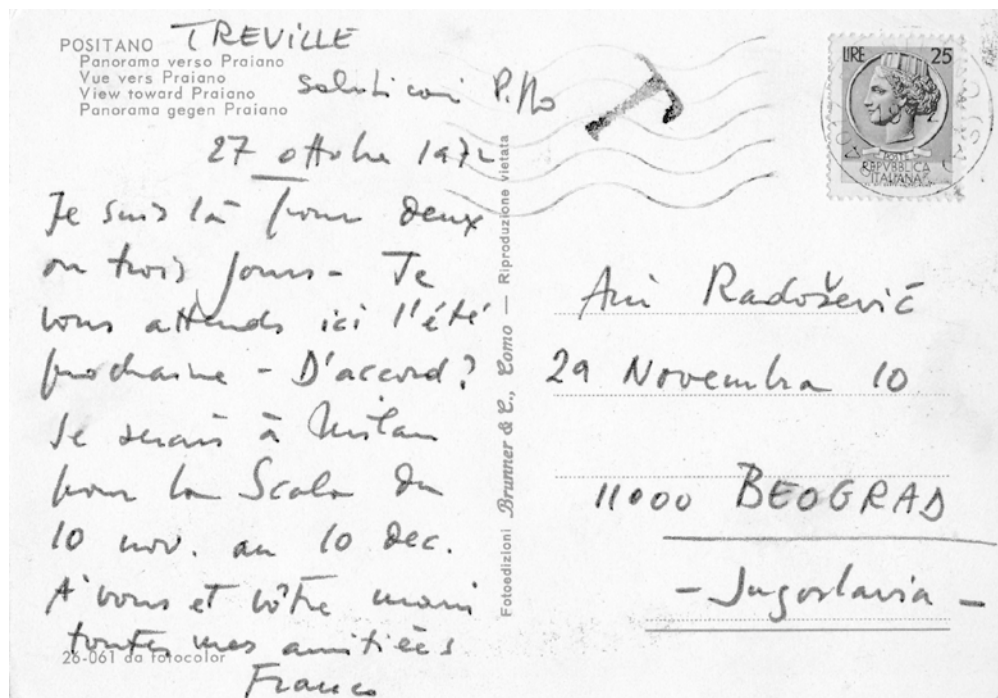 POSITANO TREVILLE
Panorama verso Praiano
Vue vers Praiano
View toward Praiano
Panorama gegen Praiano
saluti con
27 ottobre 1972
Je suis là pour deux
ou trois jours - Je
vous attends ici l'été
prochaine - D'accord?
Je serais à Milan
pour la Scala du
10 nov. au 10 dec.
A vous et vôtre mari
toutes mes amitiées
Franco
26-061 da fotocolor
Fotoedizioni Brunner & C., Como — Riproduzione vietata
LIRE 25
POSTE
REPVBBLICA
ITALIANA
T
Radošević
29 Novembra 10
11000 BEOGRAD
- Jugoslavia -